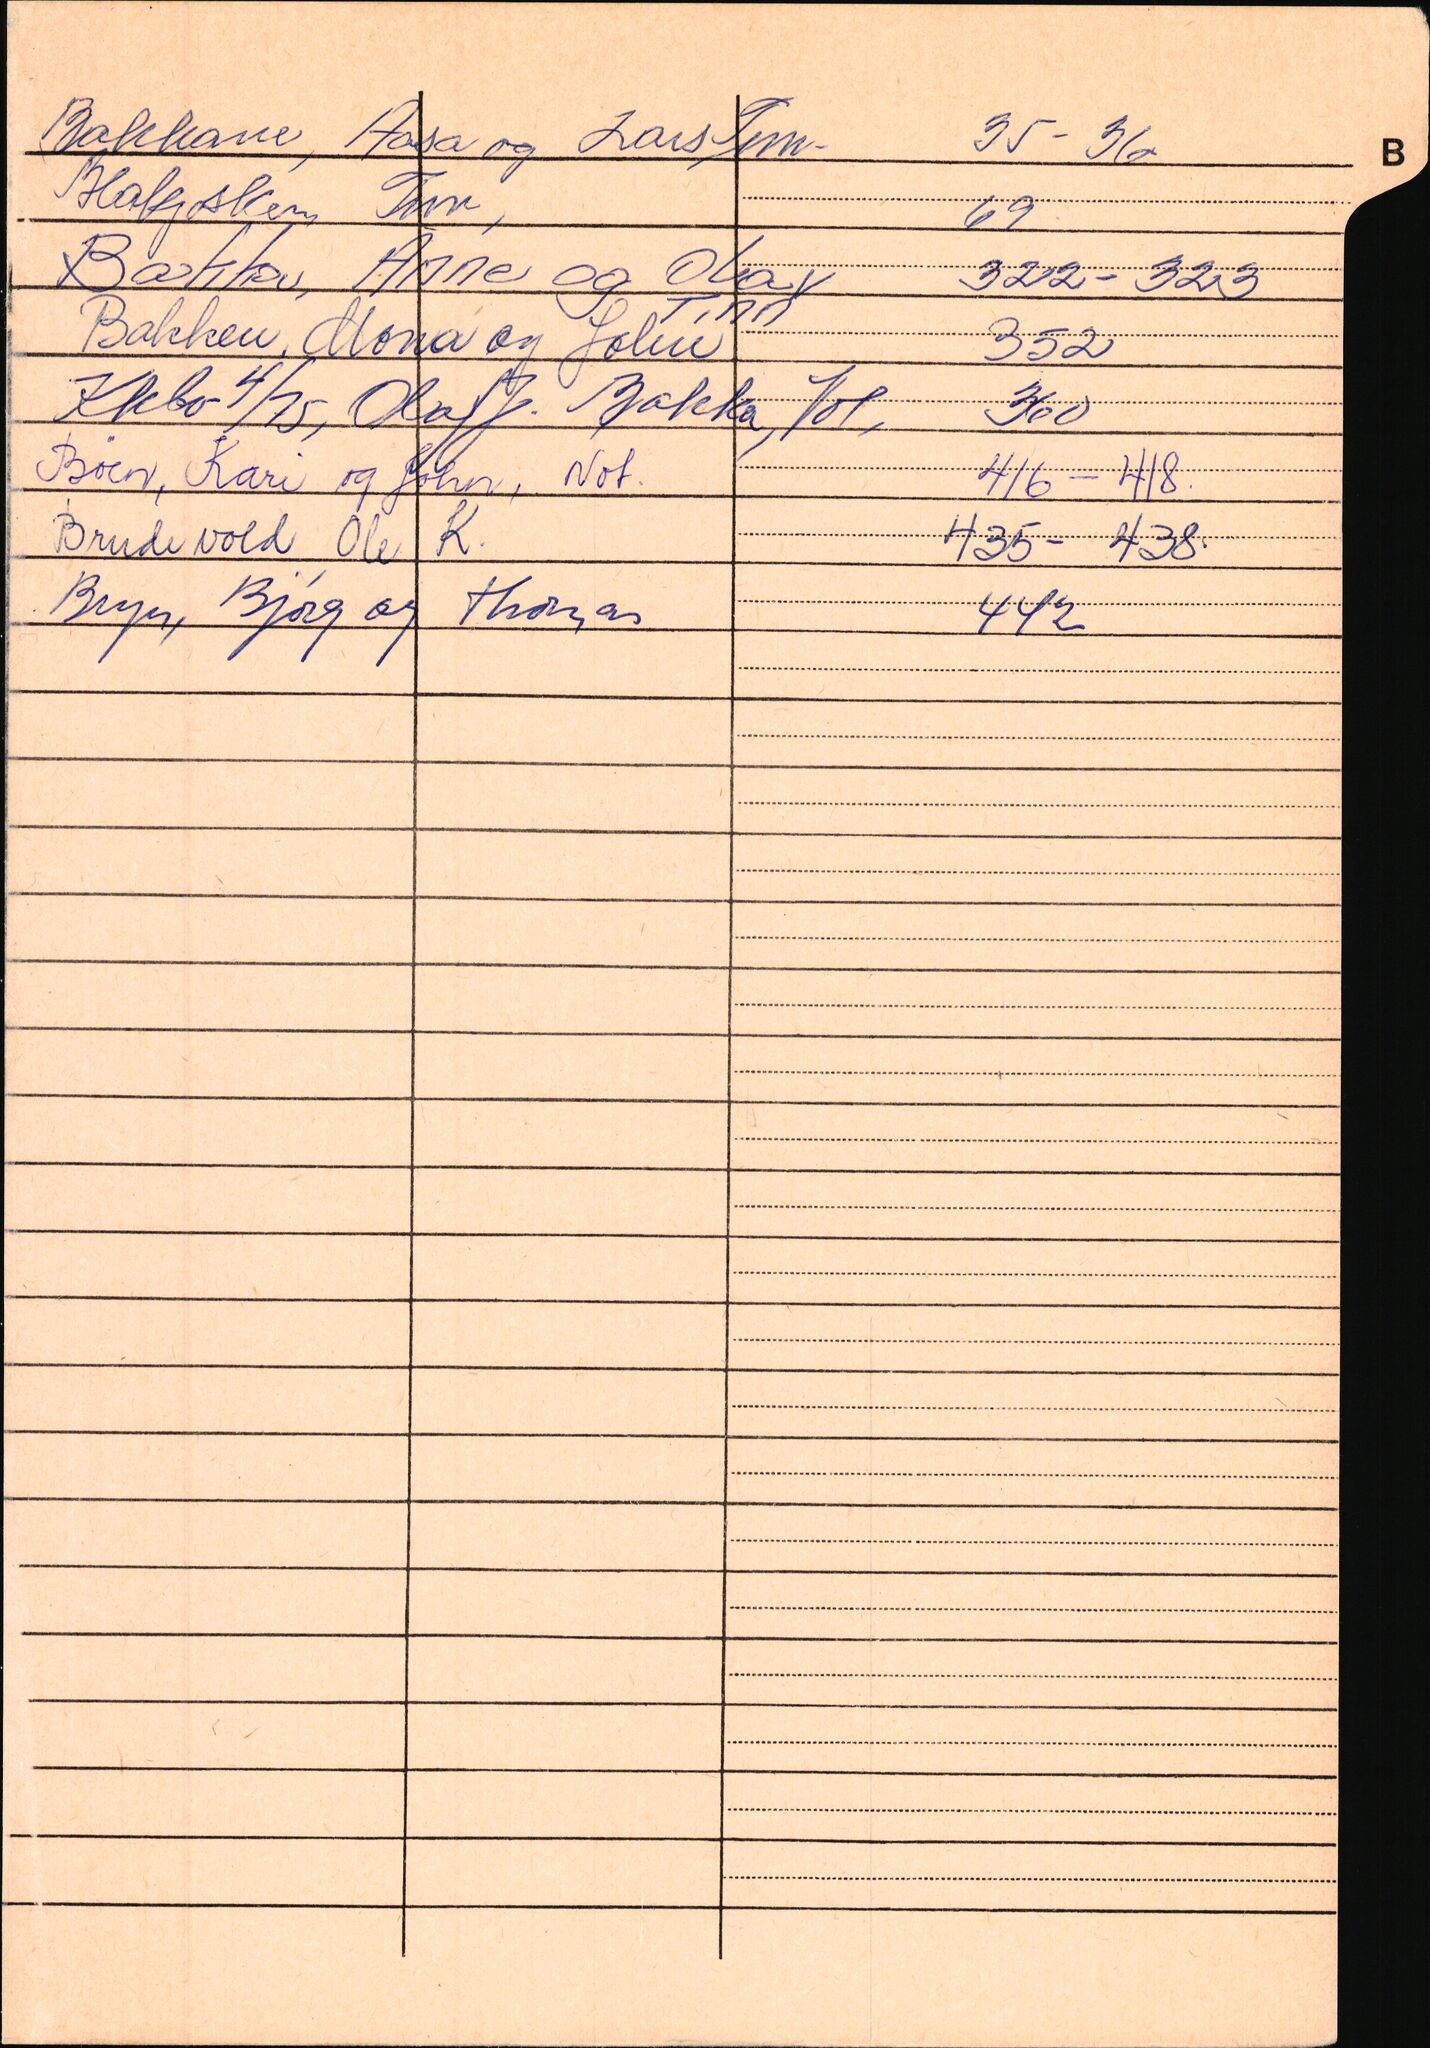 Bakkane, Aasa og Lars Tinn. 35-36
B
Tinn, 69
Bakken, Anne og Olav 322-323
Tinn
Bakken, Mona og John 352
4/75, Olaf J. Bakka, Not, 360
Bøen, Kari og John, Not. 416-418.
Brudevold Ole K. 435-438.
Bryn, Bjørg og Thomas 442